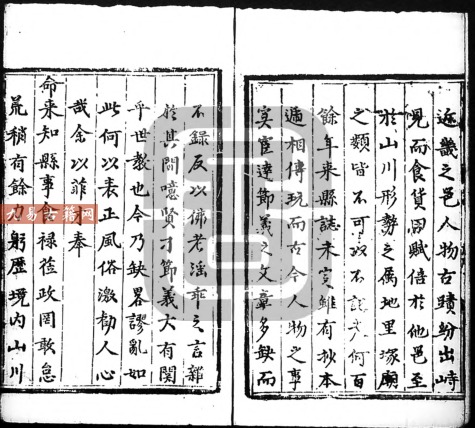 近畿之邑人物古蹟紛出峙
見而食貨田賦倍於他邑至
於山川形勢之属地里塚廟
之類皆不可以不誌夫何百
餘年来縣誌未定雖有抄本
遞相傳玩而古今人物之事
寔宦達節義之文章多缺而
不錄反以佛老滛乖之言雜
於其間噫賢才節義大有関
乎世教也今乃缺畧謬亂如
此何以表正風俗激勸人心
哉余以菲才奉
命来知縣事食禄莅政罔敢怠
荒稍有餘力躬歷境内山川
九易古籍网